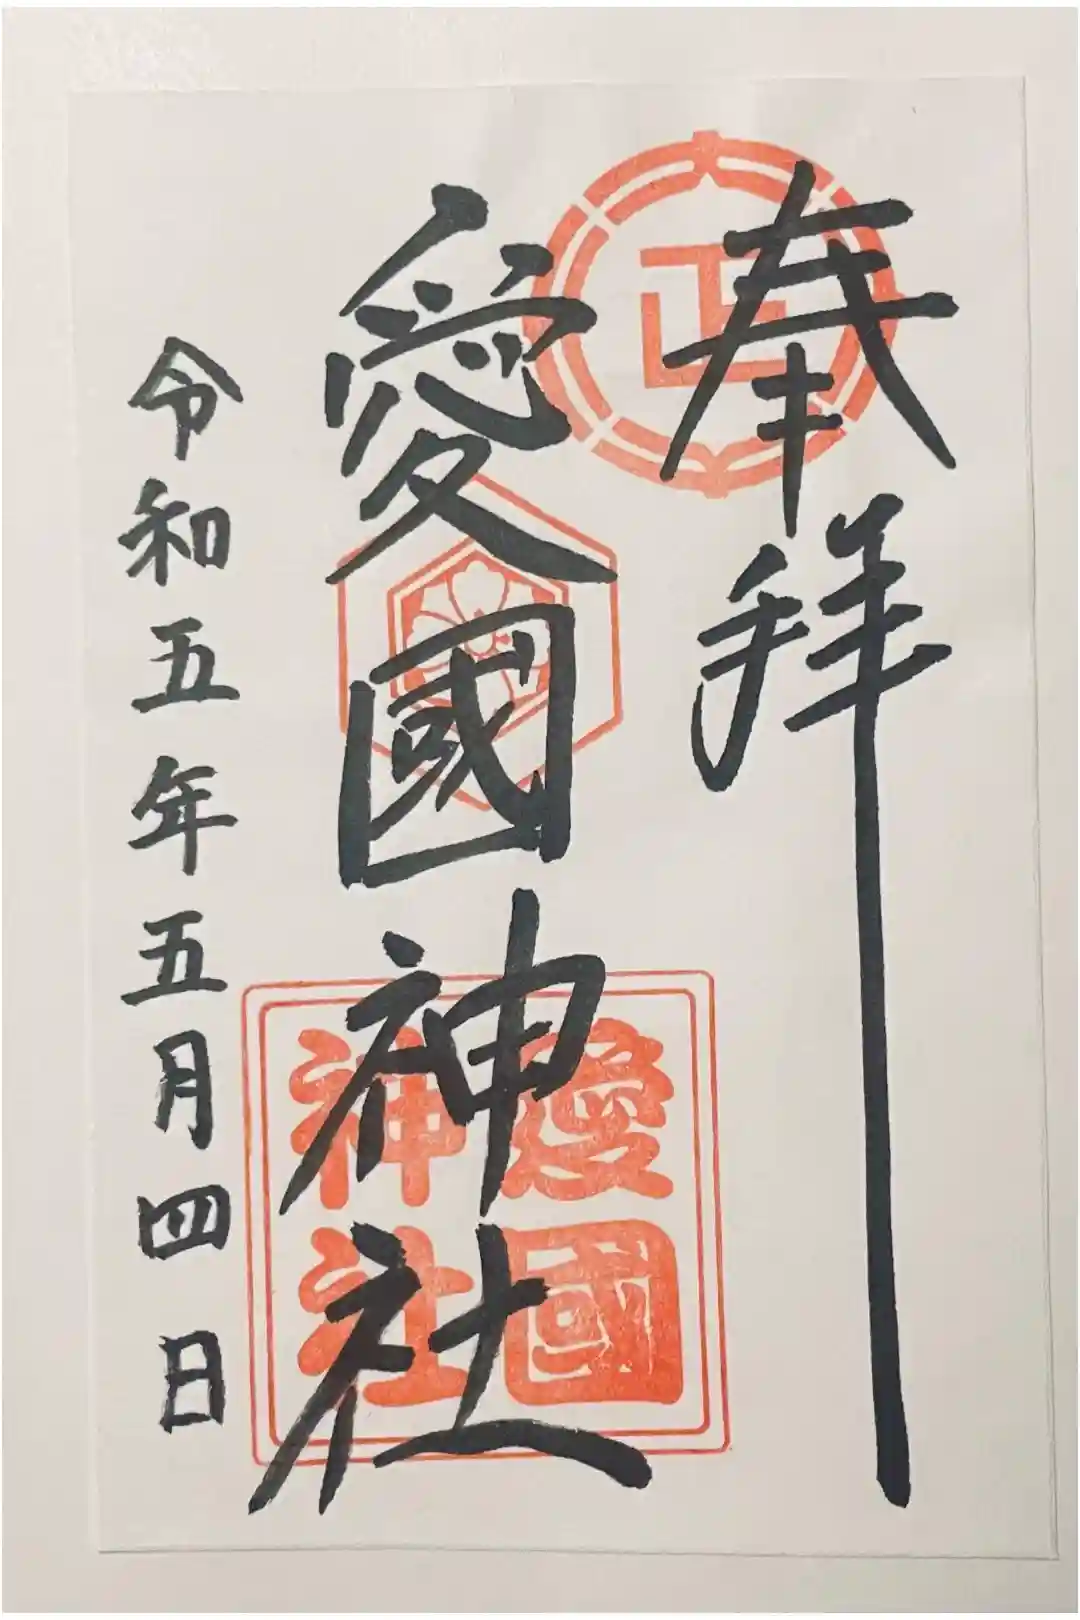 奉拝
愛國神社
愛國
神社
令和五年五月四日